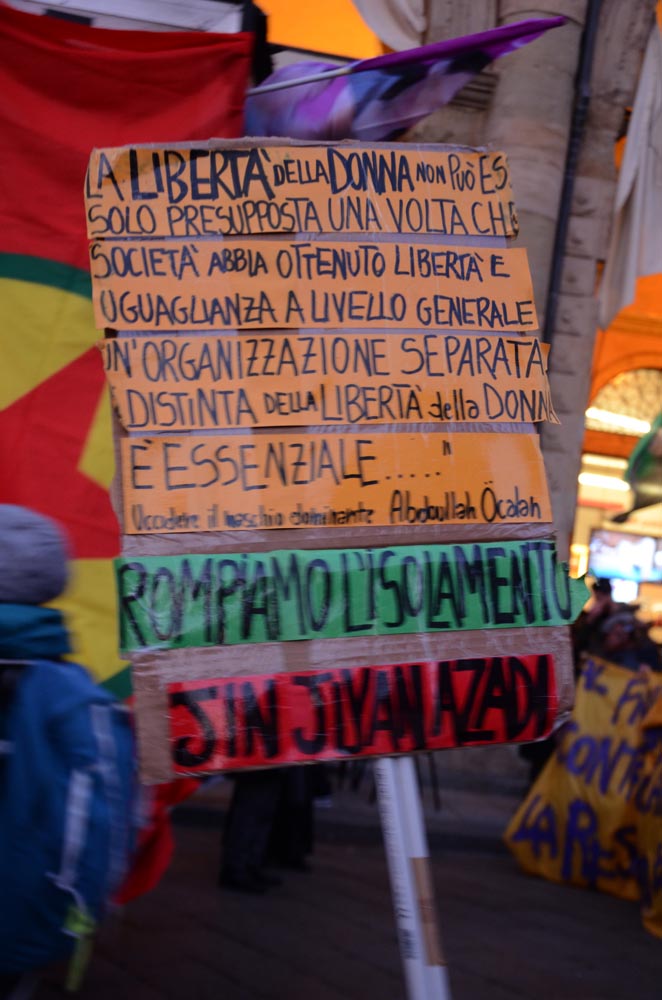 LA LIBERTÀ DELLA DONNA NON PUÒ ES
SOLO PRESUPPOSTA UNA VOLTA CHE
SOCIETÀ ABBIA OTTENUTO LIBERTÀ E
UGUAGLIANZA A LIVELLO GENERALE
UN'ORGANIZZAZIONE SEPARATA
E DISTINTA DELLA LIBERTÀ della DONNA
È ESSENZIALE....."
Uccidere il maschio dominante Abdoullah Öcalan
ROMPIAMO L'ISOLAMENTO
JIN JIYAN AZADI
CONTR
LA RES